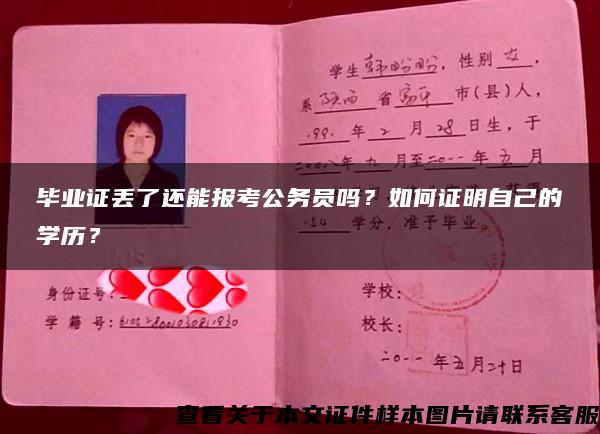 学生韩盼盼，性别女，
系陕西省富平市(县)人，
1991年2月28日生，于
二〇〇八年九月至二〇一一年五月
毕业证丢了还能报考公务员吗？如何证明自己的
学历？
154学分，准予毕业。
身份证号：
学 籍 号：
学校：
校长：
二〇一一年五月二十日
查看关于本文证件样本图片请联系客服